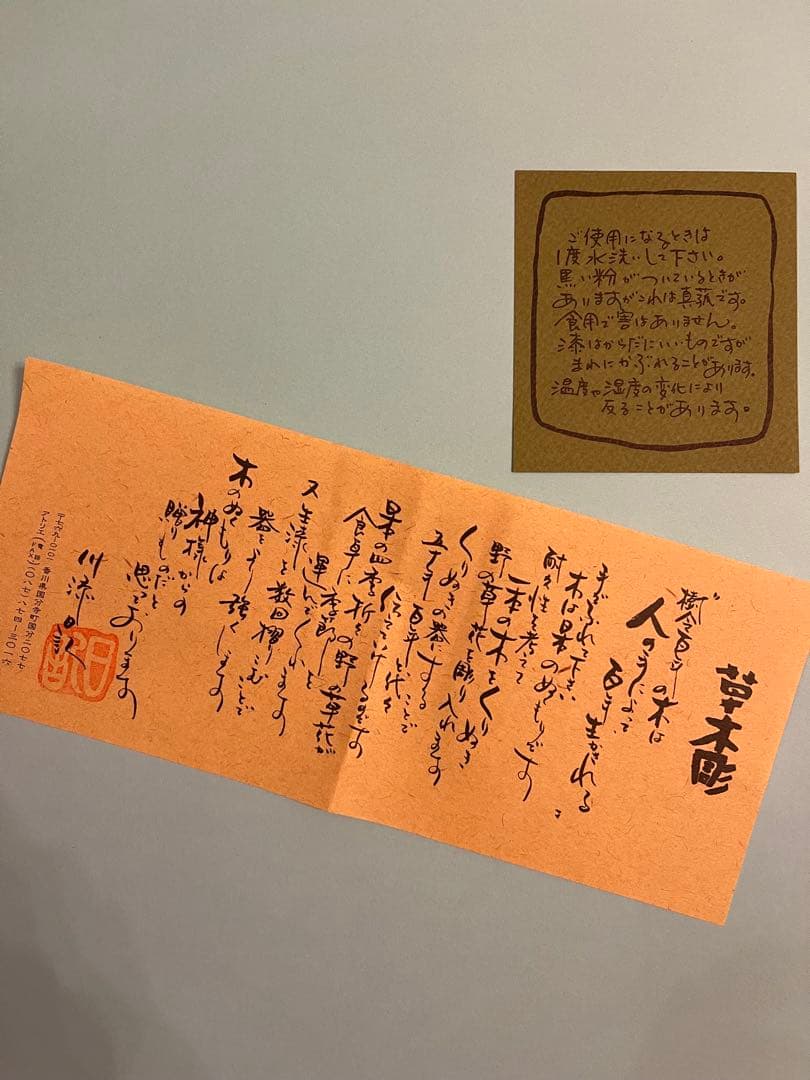 ご使用になるときは
1度水洗いして下さい。
黒い粉がついているときが
ありますがこれは真菰です。
食用で害はありません。
漆はからだにいいものですが
まれにかぶれることがあります。
温度や湿度の変化により
反ることがあります。
草木彫
樹令百年の木は
人の手によって
百年生かされる
手でふれて下さい
木は日本のぬくもりです
耐久性を考えて
一本の木をくりぬき
野の草花を彫り入れます
くりぬきの器にする
五十年 百年と
代を
伝えていけるのです
日本の四季折々の野の草花が
食卓に季節を
運んでくれます
又生漆を数回摺りこむことで
器をより強くします
木のぬくもりは
神様からの
贈りものだと
思っております
香川県国分寺町国分二〇七七